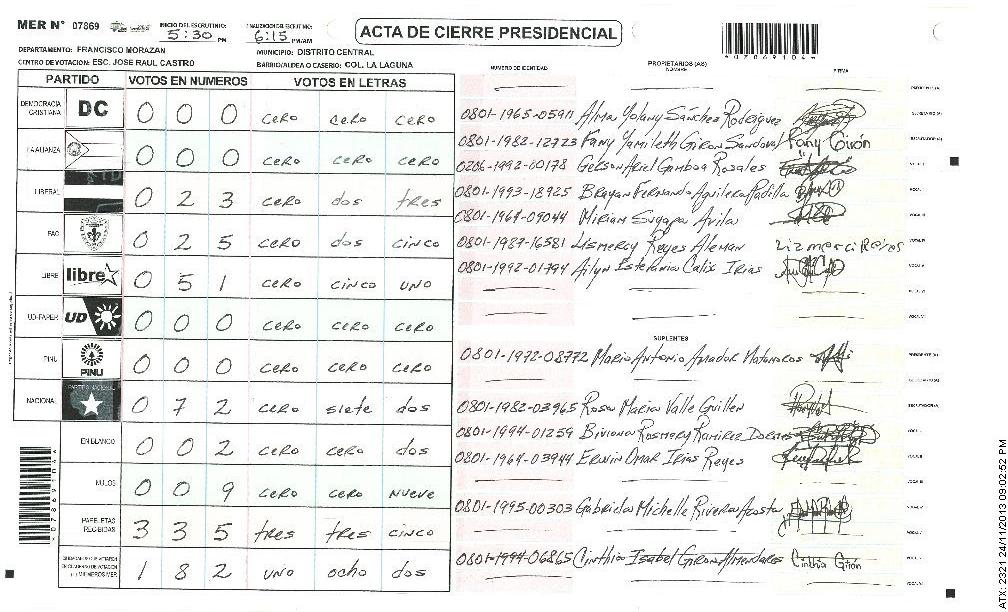 MER N° 07869 INICIO DEL ESCRUTINIO: 5:30 PM 6:15 PM/AM
ACTA DE CIERRE PRESIDENCIAL
*07869104*
DEPARTAMENTO: FRANCISCO MORAZAN MUNICIPIO: DISTRITO CENTRAL
CENTRO DE VOTACION: ESC. JOSE RAUL CASTRO BARRIO/ALDEA O CASERIO: COL. LA LAGUNA
NUMERO DE IDENTIDAD PROPIETARIOS (AS) NOMBRE FIRMA
PARTIDO VOTOS EN NUMEROS VOTOS EN LETRAS
DEMOCRACIA CRISTIANA DC 0 0 0 CERO CERO CERO
LA ALIANZA 0 0 0 CERO CERO CERO
LIBERAL 0 2 3 CERO dos tres
PAC 0 2 5 CERO dos CINCO
LIBRE libre 0 5 1 CERO CINCO UNO
UD-FAPER UD 0 0 0 CERO CERO CERO
PINU PINU 0 0 0 CERO CERO CERO
NACIONAL PARTIDO NACIONAL 0 7 2 CERO siete dos
EN BLANCO 0 0 2 CERO CERO dos
NULOS 0 0 9 CERO CERO NUEVE
PAPELETAS RECIBIDAS 3 3 5 tres tres CINCO
1 8 2 UNO ocho dos
0801-1965-05911 Alma Yolany Sánchez Rodriguez
0801-1982-12723 Fany Yamileth Giron Sandoval Fany Girón
0206-1992-00178 Gerson Ariel Gamboa Rosales
0801-1993-18925 Brayan Fernando Aguilera Padilla
0801-1964-09044 Miriam Suyapa Avila
0801-1987-16581 Lismercy Reyes Aleman Lizmerci Reyes
0801-1992-01794 Ailyn Estefania Calix Irias
SUPLENTES
0801-1972-08772 Mario Antonio Amador Matamoros
0801-1982-03965 Rosa Maria Valle Guillen
0801-1994-01259 Biviana Rosmery Ramirez
0801-1964-03944 Erwin Omar Irias Reyes
0801-1995-00303 Gabriela Michelle Rivera Acosta
0801-1994-06865 Cinthia Isabel Giron Almendares Cinthia Giron
*07869104*
ATX: 2321 24/11/2013 09:02:52 PM